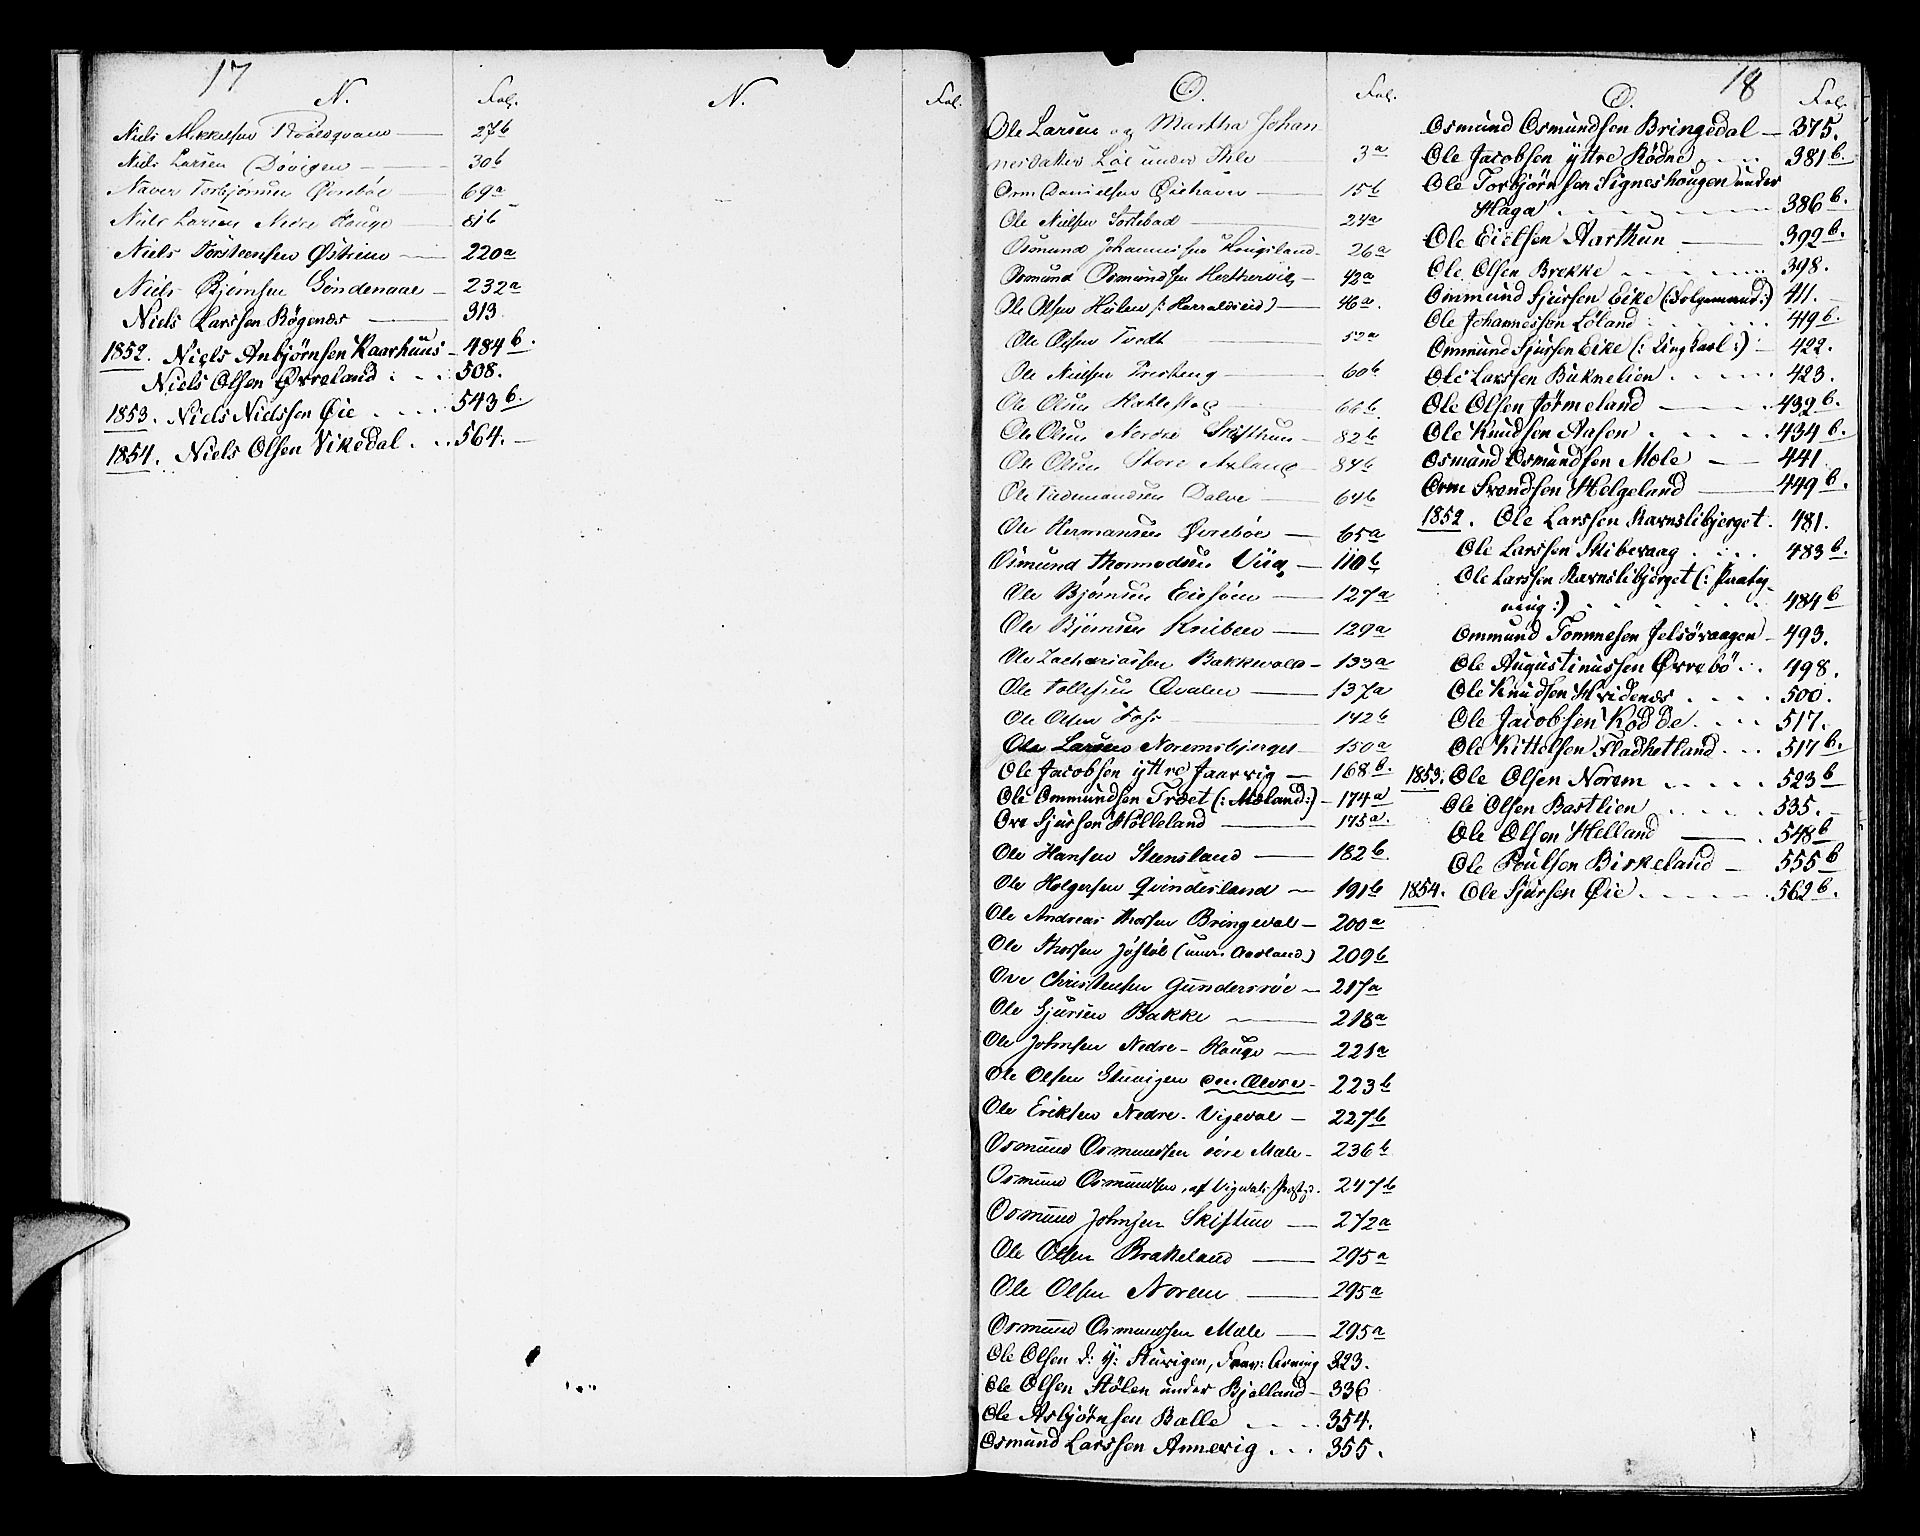 17
N. Fol. N. Fol.
Niels Mikkelsen 27b
Niels Larsen Døvigen 30b
Naver Torbjørnsen Øvrebøe 69a
Niels Larsen Nedre Houge 81b
Niels Torsteensen Østreim 220a
Niels Bjørnsen Søndenaae 232a
Niels Larssen Bøgenæs 313.
1852. Niels Anbjørnsen Kaarhuus 484b.
Niels Olsen Øvreland 508.
1853. Niels Nielssen Øie 543b.
1854. Niels Olsen Vikedal 564.
18
O. Fol.
Ole Larsen og Martha Johan
nesdatter Løe under Ihle 3a
Orm Danielsen Øiehaven 15b
Ole Nielsen 24a
Osmund Johannessen Kongsland 26a
Osmund Osmundsen Herthervig 42a
Ole Olsen Hülen (: Harraldseid) 46a
Ole Olsen Tvedt 52a
Ole Nielsen 60b
Ole Olsen Hatlestog 66b
Ole Olsen Nordre Skifthun 82b
Ole Olsen Store Axland 84b
Ole Tidemandsen Dalve 64b
Ole Hermansen Øvrebøe 65a
Osmund Thormodsen Viga 110b
Ole Bjørnsen Eiesøen 127a
Ole Bjørnsen Kniben 129a
Ole Zachariassen Bakkevold 133a
Ole Tollefsen Qvalen 137a
Ole Olsen Foss 142b
Ole Larsen Noremsbjerget 150a
Ole Jacobsen yttre Jaarvig 168b.
Ole Ommundsen Træet (: Mæland:) 174a
Ove Sjursen Hølleland 175a.
Ole Hansen Steensland 182b.
Ole Holgersen Qvindesland 191b
Ole Andreas Thorsen Bringedal 200a
Ole Thorsen Jøstøl (under Aarland) 209b
Ove Christensen Gunderrøe 217a
Ole Sjursen Bakke 218a
Ole Johnsen Nedre-Houge 221a
Ole Olsen Stuvigen den Ældre 223b
Ole Eriksen Nedre-Vigedal 227b
Osmund Osmundsen søre Mæle 236b
Osmund Osmundsen, af Vigedals Prestgd. 247b
Osmund Johnsen Skiftun 272a
Ole Olsen Brakeland 295a
Ole Olsen Norem 295a
Osmund Osmundsen Mæle 295a
Ole Olsen d: y: Stuvigen, 323.
Ole Olsen Stølen under Bjelland 336
Ole Asbjørnsen Balle 354.
Osmund Larssen Annevig 355.
O. Fol.
Osmund Osmundsen Bringedal 375.
Ole Jacobsen yttre Rødne 381b.
Ole Torbjørnsen Signeshougen under
Haga 386b.
Ole Eielsen Aarthun 392b.
Ole Olsen Brekke 398.
Ommund Sjursen Eike (: Folgemand:) 411.
Ole Johannessen Løland 419b.
Ommund Sjursen Eike (: Ungkarl:) 422.
Ole Larssen Buknelien 423.
Ole Olsen Jørmeland 432b.
Ole Knudsen Aasen 434b.
Osmund Osmundsen Mæle 441
Orm Svendsen Helgeland 449b.
1852. Ole Larssen Ravnslibjerget 481.
Ole Larssen Skibevaag 483b.
Ole Larssen Ravnslibjerget (: Paateg-
ning:) 484b
Ommund Tommesen Jelsøvaagen 493.
Ole Augustinussen Øvrebø 498.
Ole Knudsen Hvidenæs 500.
Ole Jacobsen Rødde 517.
Ole Kittelsen Fladhetland 517b.
1853. Ole Olsen Norem 523b
Ole Olsen Bastlien 535.
Ole Olsen Helland 548b
Ole Poulsen Birkeland 555b
1854. Ole Sjursen Øie 562b.